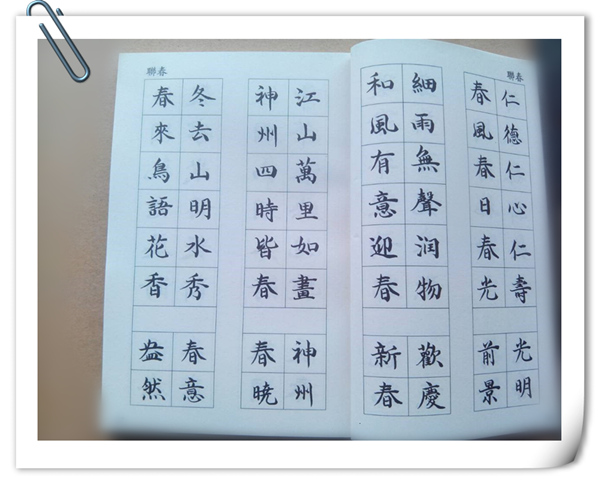 春聯
仁德仁心仁壽
春風春日春光
光明
前景
細雨無聲润物
和風有意迎春
歡慶
新春
江山萬里如畫
神州四時皆春
神州
春暁
春聯
冬去山明水秀
春來鳥語花香
春意
盎然